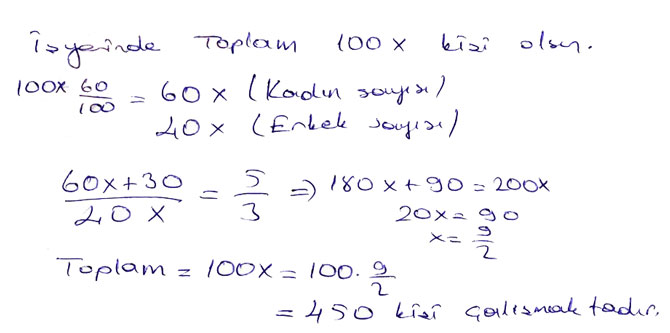 İşyerinde Toplam 100x kişi olsun.
100x 60/100 = 60x (Kadın sayısı)
40x (Erkek sayısı)
60x+30/40x = 5/3 => 180x+90=200x
20x=90
x=9/2
Toplam = 100x = 100.9/2
= 450 kişi çalışmaktadır.